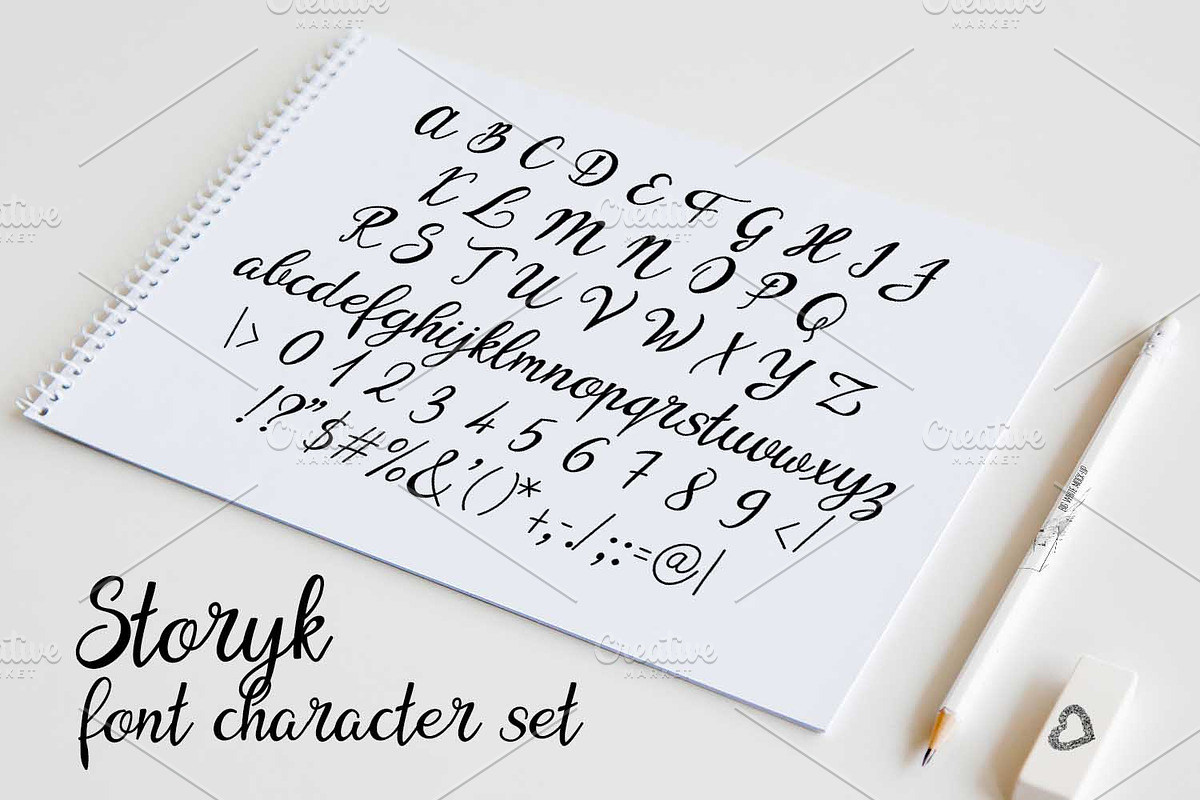 A B C D E F G H I J
K L M N O P Q
R S T U V W X Y Z
abcdefghijklmnopqrstuvwxyz
|> 0 1 2 3 4 5 6 7 8 9 <|
!?"$#%&'()*+,-./;:=@|
Storyk
font character set
Creative
MARKET